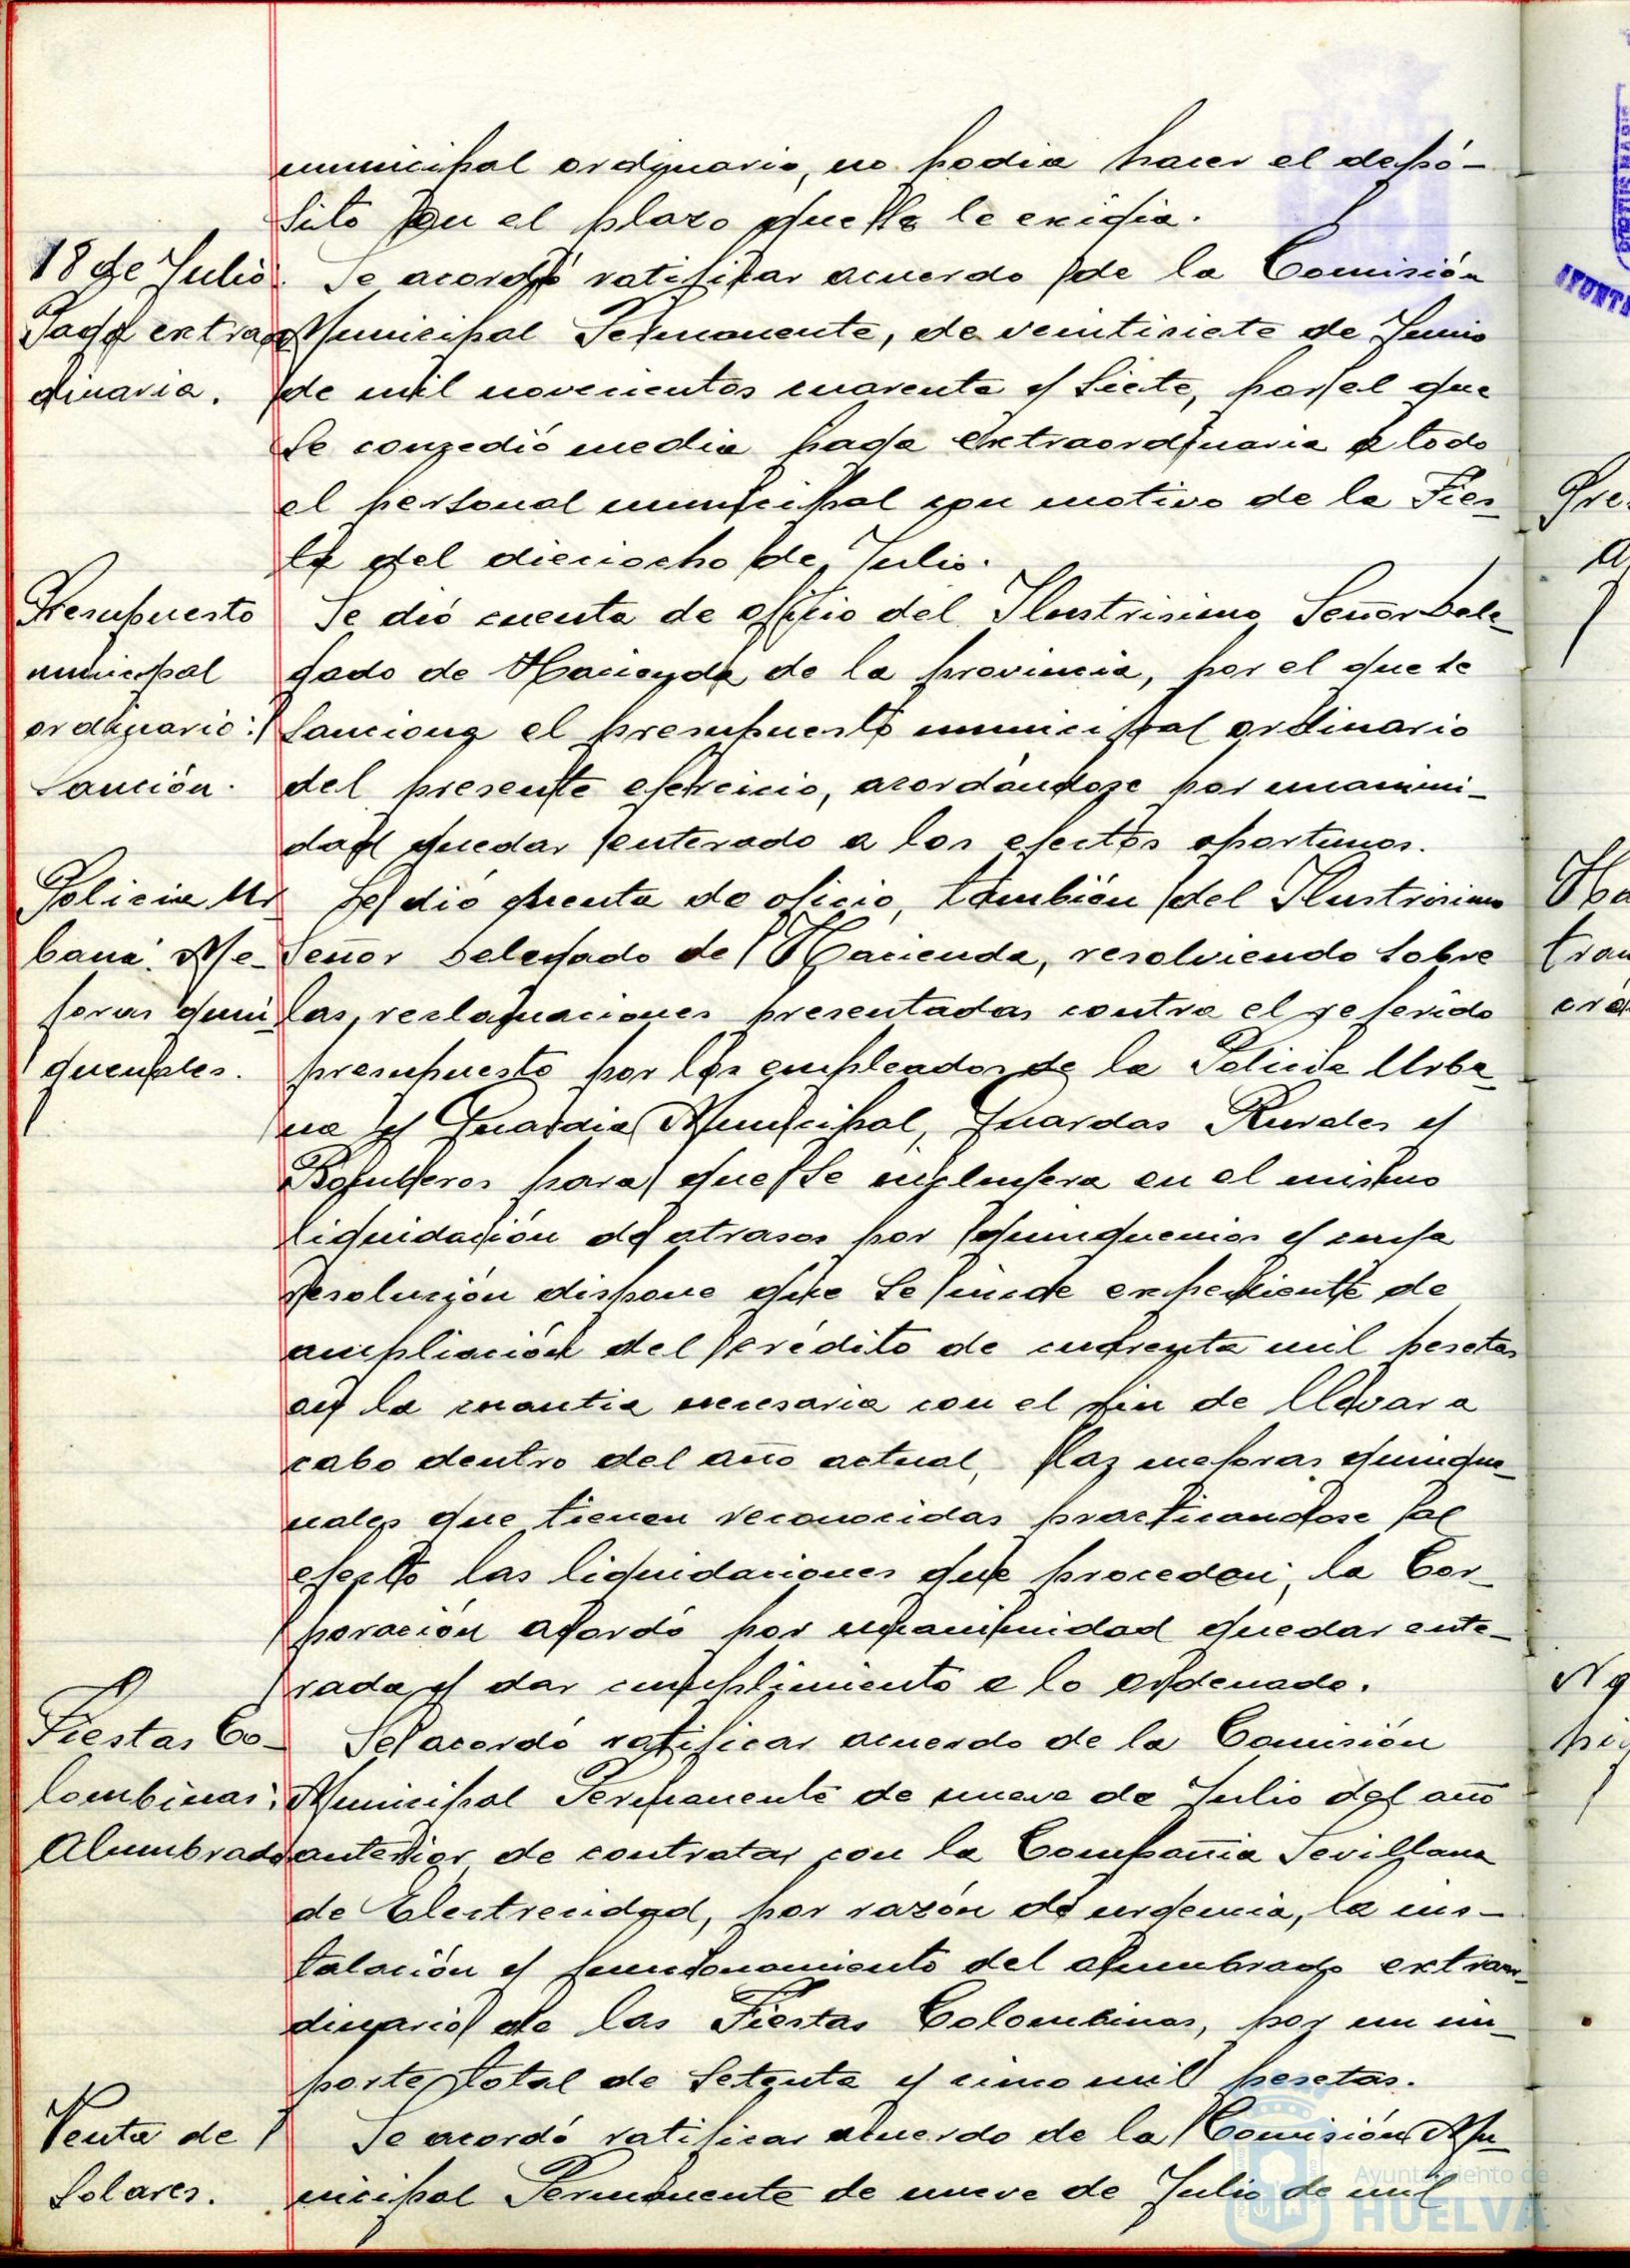 municipal ordinario, no podia hacer el depó-
sito en el plazo que se le exigia.
18 de Julio:
Paga extraor
dinaria.
Se acordó ratificar acuerdo de la Comisión
Municipal Permanente, de veintisiete de Junio
de mil novecientos cuarenta y siete, por el que
se concedió media paga extraordinaria a todo
el personal municipal con motivo de la Fies-
ta del dieciocho de Julio.
Presupuesto
municipal
ordinario:
Sanción.
Se dió cuenta de oficio del Ilustrisimo Señor Dele-
gado de Hacienda de la provincia, por el que se
sanciona el presupuesto municipal ordinario
del presente ejercicio, acordándose por unanimi-
dad quedar enterado a los efectos oportunos.
Policia Ur
bana: Me-
joras quin
quenales.
Se dió cuenta de oficio, también del Ilustrisimo
Señor Delegado de Hacienda, resolviendo sobre
las reclamaciones presentadas contra el referido
presupuesto por los empleados de la Policia Urba-
na y Guardia Municipal, Guardas Rurales y
Bomberos para que se incluyera en el mismo
liquidación de atrasos por quinquenios y cuya
resolución dispone que se incide expediente de
ampliación del crédito de cuarenta mil pesetas
en la cuantia necesaria con el fin de llevar a
cabo dentro del año actual, las mejoras quinque-
nales que tienen reconocidas practicandose al
efecto las liquidaciones que procedan; la Cor-
poración acordó por unanimidad quedar ente-
rada y dar cumplimiento a lo ordenado.
Fiestas Co-
lombinas:
Alumbrado
Se acordó ratificar acuerdo de la Comisión
Municipal Permanente de nueve de Julio del año
anterior de contratar con la Compañia Sevillana
de Electrecidad, por razón de urgencia, la ins-
talación y funcionamiento del alumbrado extraor-
dinario de las Fiestas Colombinas, por un im-
porte total de setenta y cinco mil pesetas.
Venta de
Solares.
Se acordó ratificar acuerdo de la Comisión Mu-
nicipal Permanente de nueve de Julio de mil
Ayuntamiento de
HUELVA